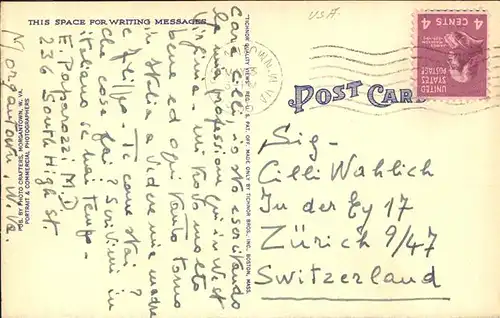 THIS SPACE FOR WRITING MESSAGES
Cara Cilli, io sto esercitando
la mia professione qui in West
Virginia - mi trovo molto
bene ed ogni tanto torno
in Italia a vedere mia madre
e Tu come stai?
che cosa fai? Scrivimi in
italiano se hai tempo -
E. Paparozzi M.D.
236 South High St.
Morgantown, W. Va.
POS. BY PHOTO CRAFTERS, MORGANTOWN, W. VA.
PORTRAIT & COMMERCIAL PHOTOGRAPHERS
"TICHNOR QUALITY VIEWS," REG. U. S. PAT. OFF. MADE ONLY BY TICHNOR BROS., INC., BOSTON, MASS.
USA.
POST CARD
UNITED STATES POSTAGE
4 CENTS 4
Sig.
Cilli Wahlich
In der Ey 17
Zürich 9/47
Switzerland